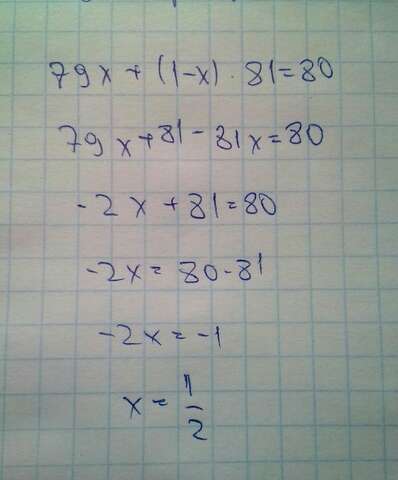 79x + (1-x) · 81 = 80
79x + 81 - 81x = 80
-2x + 81 = 80
-2x = 80 - 81
-2x = -1
x = 1/2